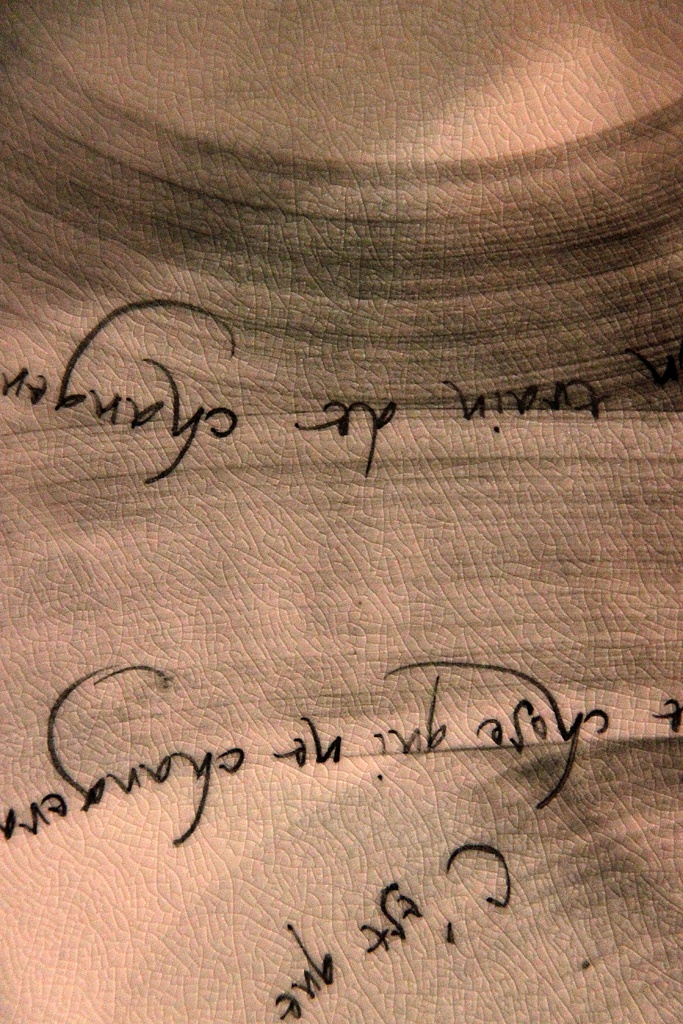 C'est que
chose qui ne changera
n train de changer